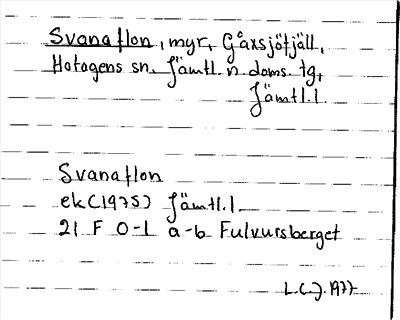 Svanaflon, myr, Gåxsjöfjäll,
Hotagens sn. Jämtl. n. doms. tg,
Jämtl. l.
Svanaflon
ek (1975) Jämtl. l.
21 F 0-1 a-b Fulvursberget
L.C.J. 1977